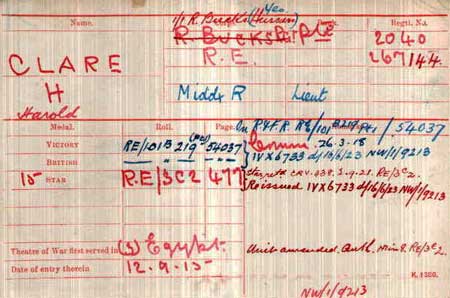 1/1 R. Bucks (Hussars) Yeo.
Name. Corps. Rank. Regtl. No.
R. Bucks H Pte 2040
CLARE R.E. 267144
H
Harold Middx R Lieut
Medal. Roll. Page. In R & F. R. RE/101B219 / 54037
VICTORY RE/101B 219 54037 Comm 26.3.18
BRITISH —"— —"— IVX6733 d/16/6/23 NW/1/9213
15 STAR R.E/3C2 477 CRV. 3.9.21. RE/3C2.
Reissued IVX6733 d/16/6/23 NW/1/9213
Theatre of War first served in (3) Egypt. Unit amended. Auth. RE/3C2.
Date of entry therein 12.9.15
K. 1380.
NW/1/9213